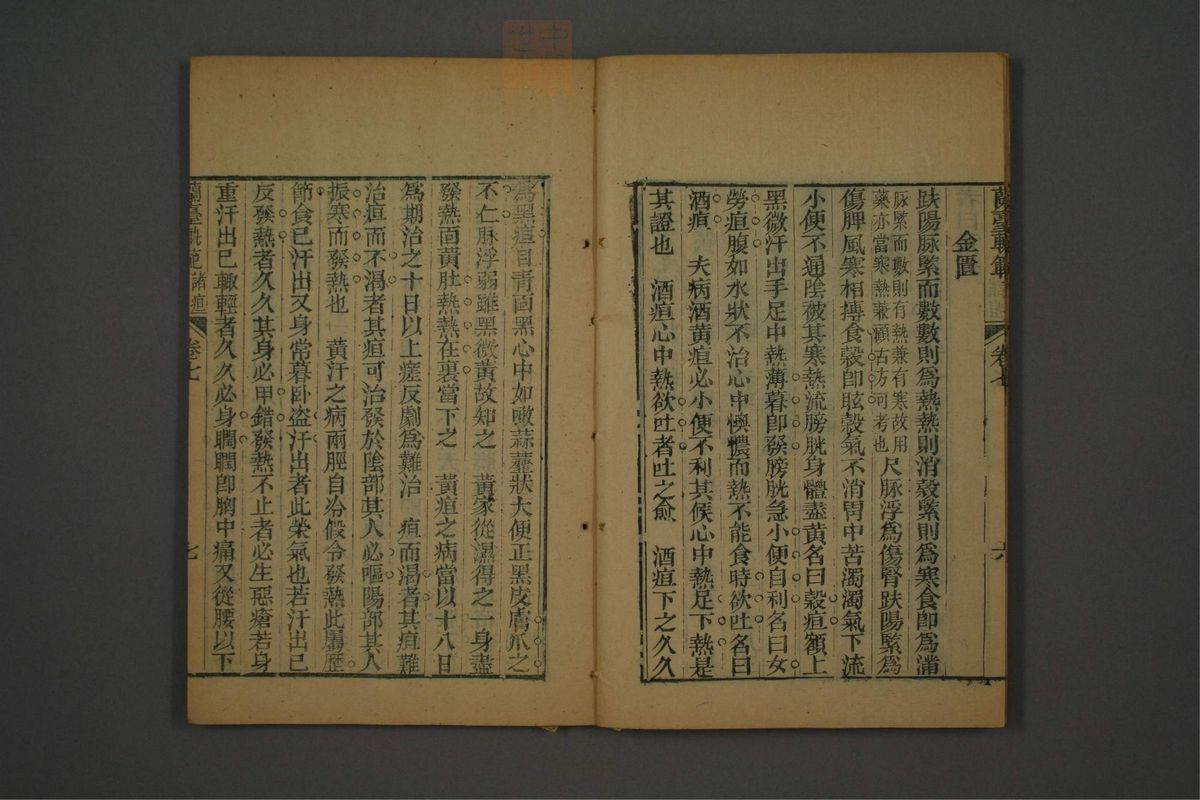 金匱
趺陽脉緊而數數則為熱熱則消穀緊則為寒食卽為滿
脉緊而數則有熱兼有寒故用
藥亦當寒熱兼顧古方可考也
尺脉浮為傷腎趺陽緊為
傷脾風寒相搏食穀卽眩穀氣不消胃中苦濁濁氣下流
小便不通陰被其寒熱流膀胱身體盡黃名曰穀疸額上
黑微汗出手足中熱薄暮卽發膀胱急小便自利名曰女
勞疸腹如水狀不治心中懊憹而熱不能食時欲吐名曰
酒疸　夫病酒黃疸必小便不利其候心中熱足下熱是
其證也　酒疸心中熱欲吐者吐之愈　酒疸下之久久
卷七
六
為黑疸目青面黑心中如噉蒜虀狀大便正黑皮膚爪之
不仁脉浮弱雖黑微黃故知之　黃家從濕得之一身盡
發熱面黃肚熱熱在裏當下之　黃疸之病當以十八日
為期治之十日以上瘥反劇為難治　疸而渴者其疸難
治疸而不渴者其疸可治發於陰部其人必嘔陽部其人
振寒而發熱也　黃汗之病兩脛自冷假令發熱此屬歷
節食已汗出又身常暮卧盗汗出者此榮氣也若汗出已
反發熱者久久其身必甲錯發熱不止者必生惡瘡若身
重汗出已輙輕者久久必身瞤瞤卽胸中痛又從腰以下
蘭臺軌范　諸疸　卷七
七